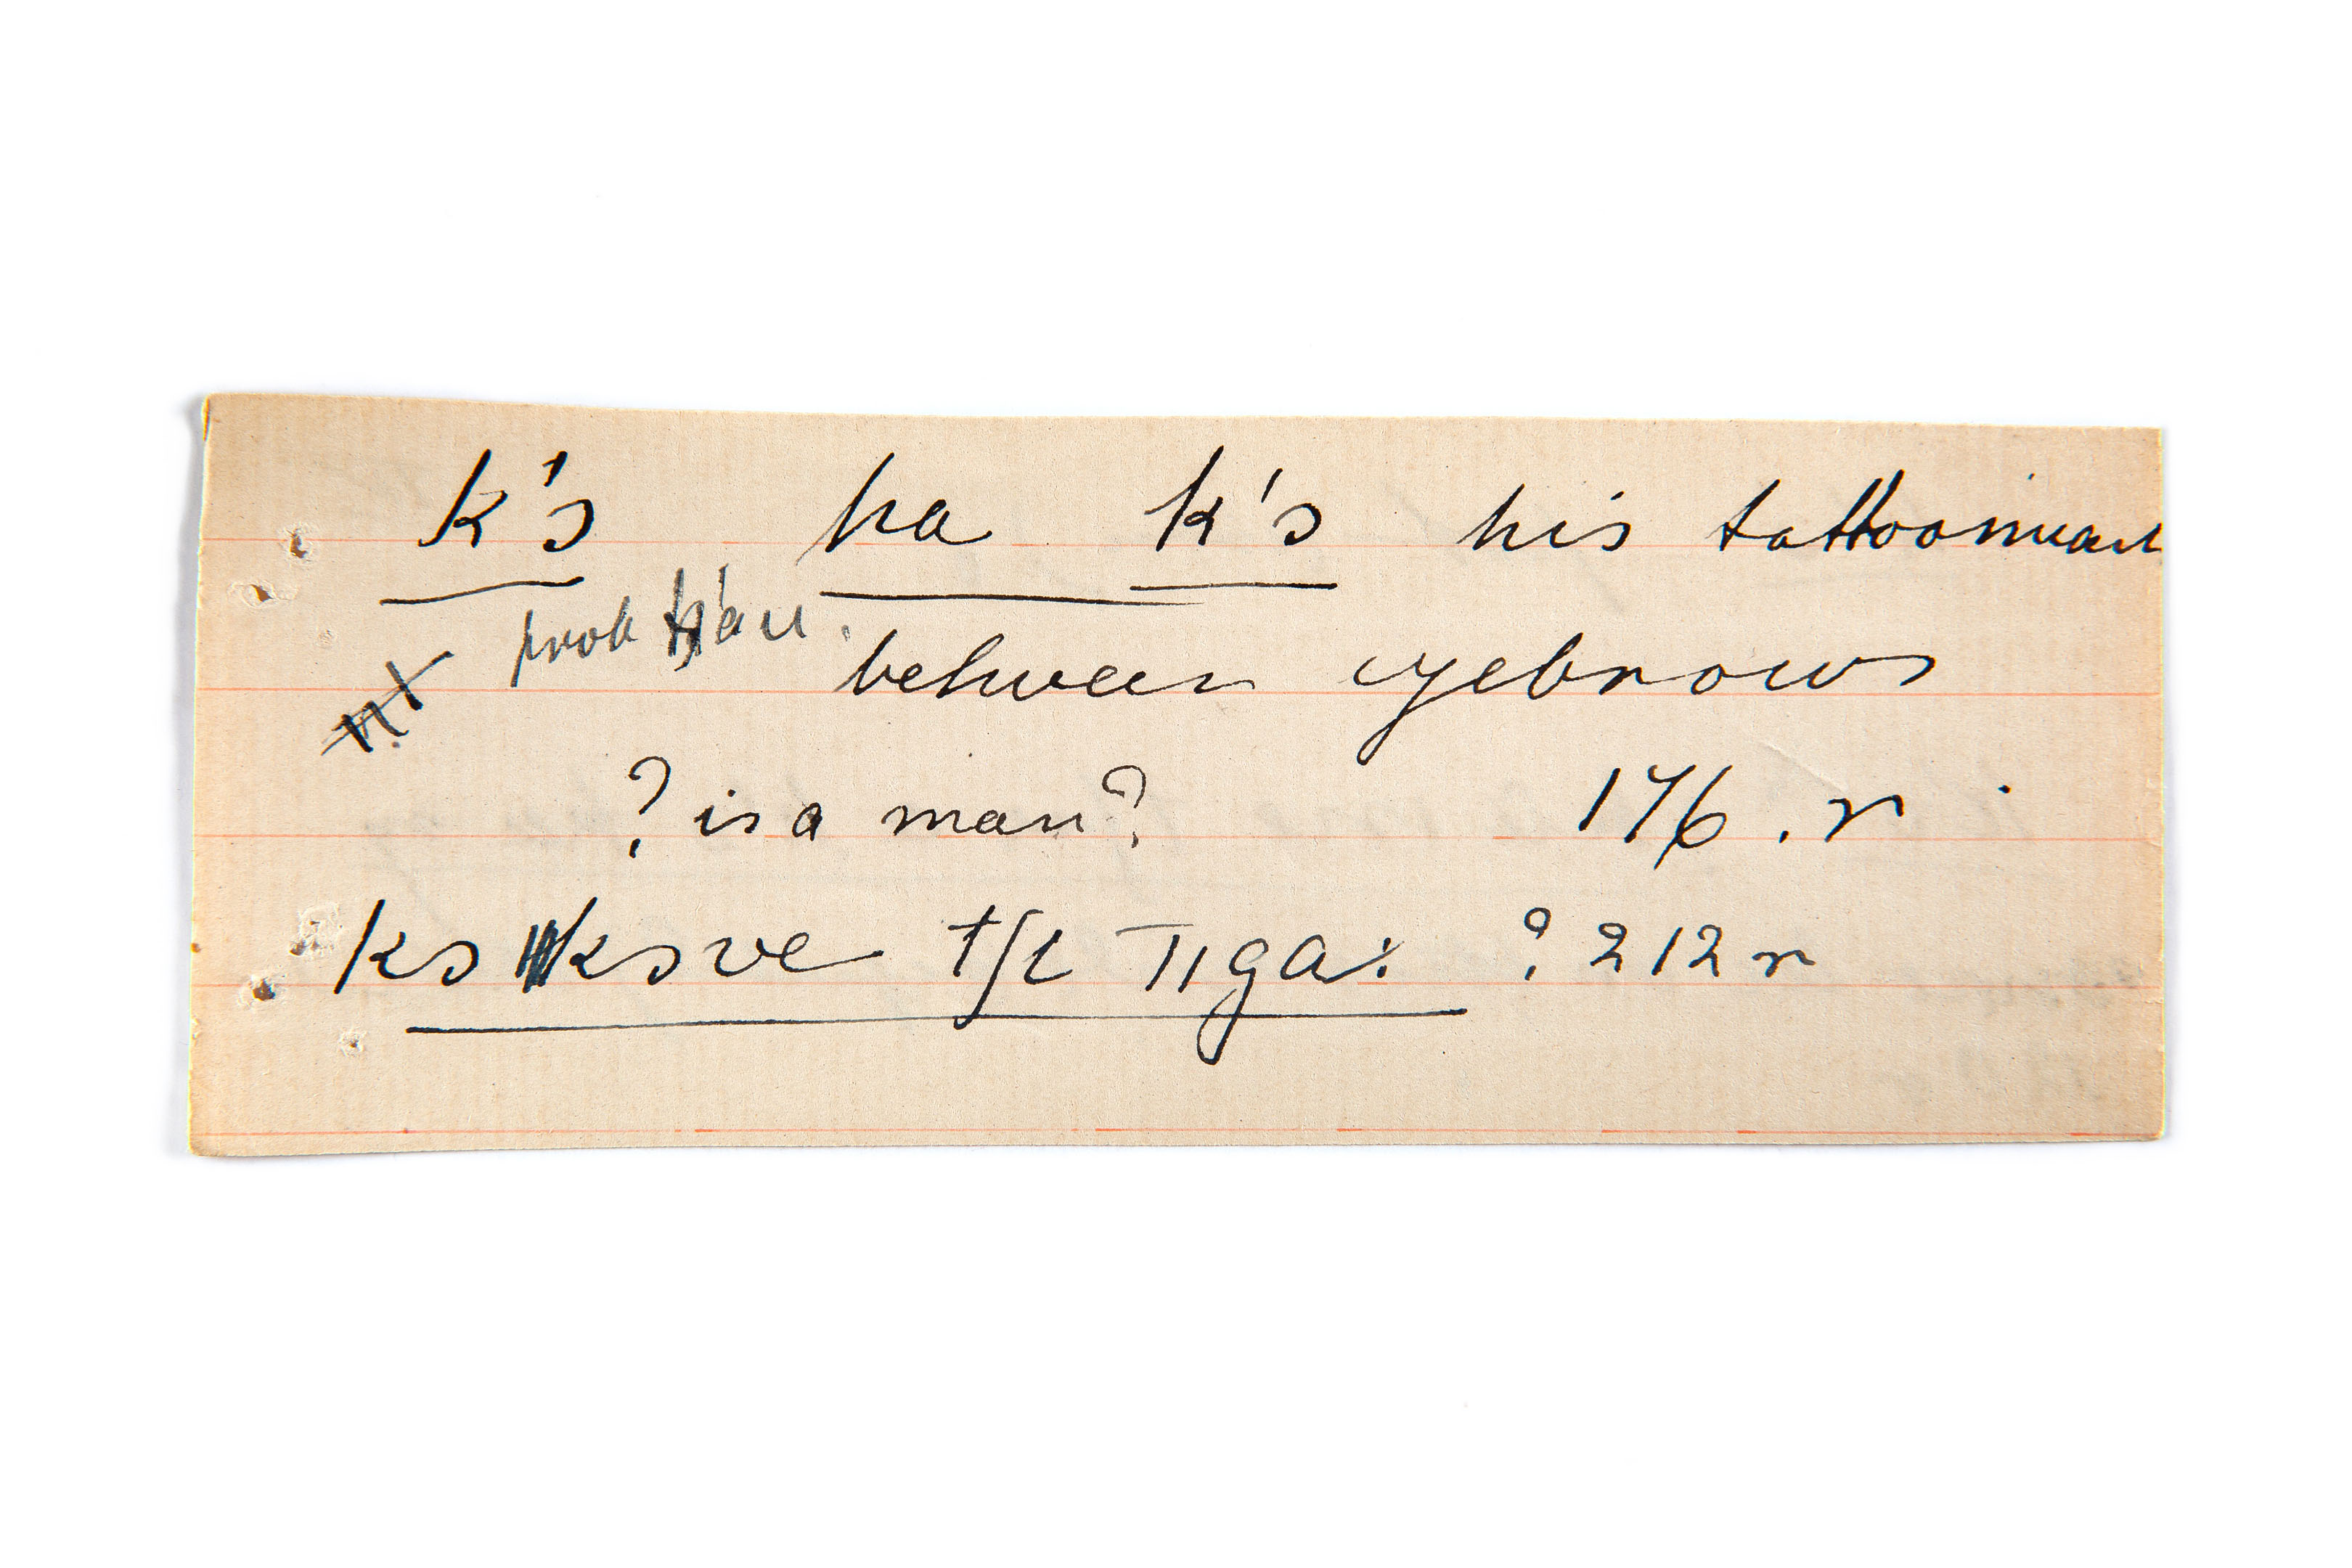 k's ha k's his tattoo mark
prob
between eyebrows
? is a man? 176. r
ks ksve ? 212 r